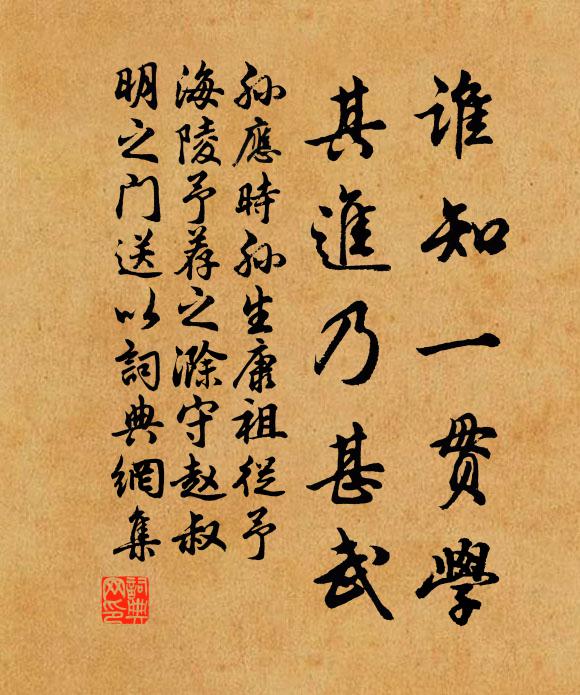 谁知一贯学
其進乃甚武
孙應時孙生康祖從予
海陵予荐之滁守赵叔
明之门送以詞典網集
詞典
网印